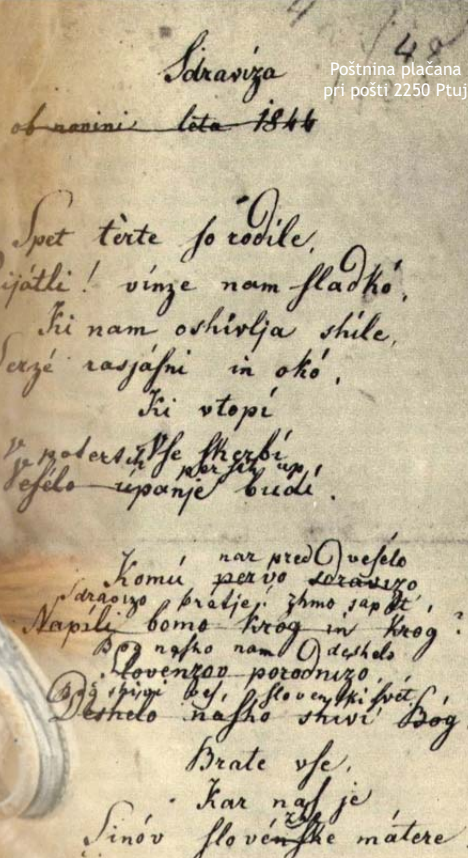 48
Poštnina plačana
pri pošti 2250 Ptuj
Sdraviza
ob novini léta 1844
Spet tèrte so rodíle,
ijátli! vínze nam sladkó,
Ki nam oshívlja shíle,
Serzé rasjásni in okó,
Ki vtopí
Vse skerbí
V potertih persih up
Vesélo úpanje budí.
nar pred veselo
Komú pervo sdravizo
Sdravizo bratje! zhmo sapét',
Napíli bomo krog in krog?
Bog nasho nam deshelo
Slovenzov porodnizo,
Bog shivi ves, slovenski svét,
Deshelo nasho shiví Bóg
Brate vse,
Kar nas je
zhne
Sinóv slovénske mátere!